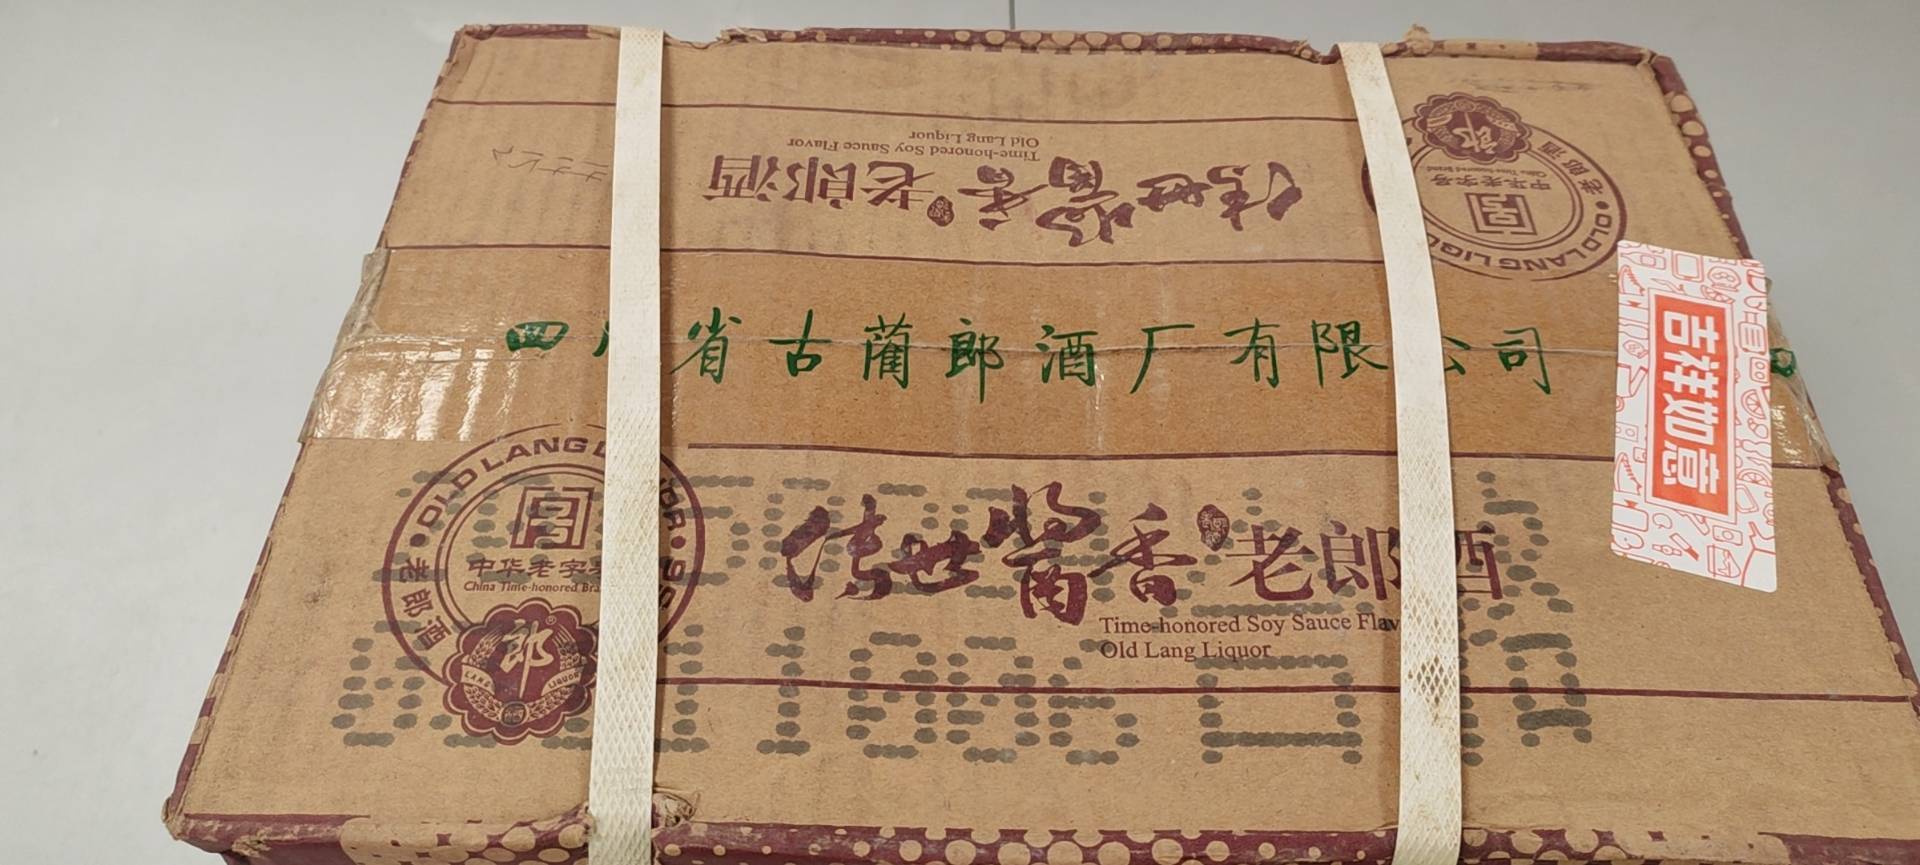 传世酱香老郎酒
Time-honored Soy Sauce Flavor
Old Lang Liquor
中华老字号
China Time-honored Brand
老郎酒
OLD LANG LIQU
郎
四川省古蔺郎酒厂有限公司
吉祥如意
OLD LANG L OR · 1956
中华老字号
China Time-honored Bra
老郎酒
郎
LANG LIQUOR
传世酱香老郎酒
Time-honored Soy Sauce Flav
Old Lang Liquor